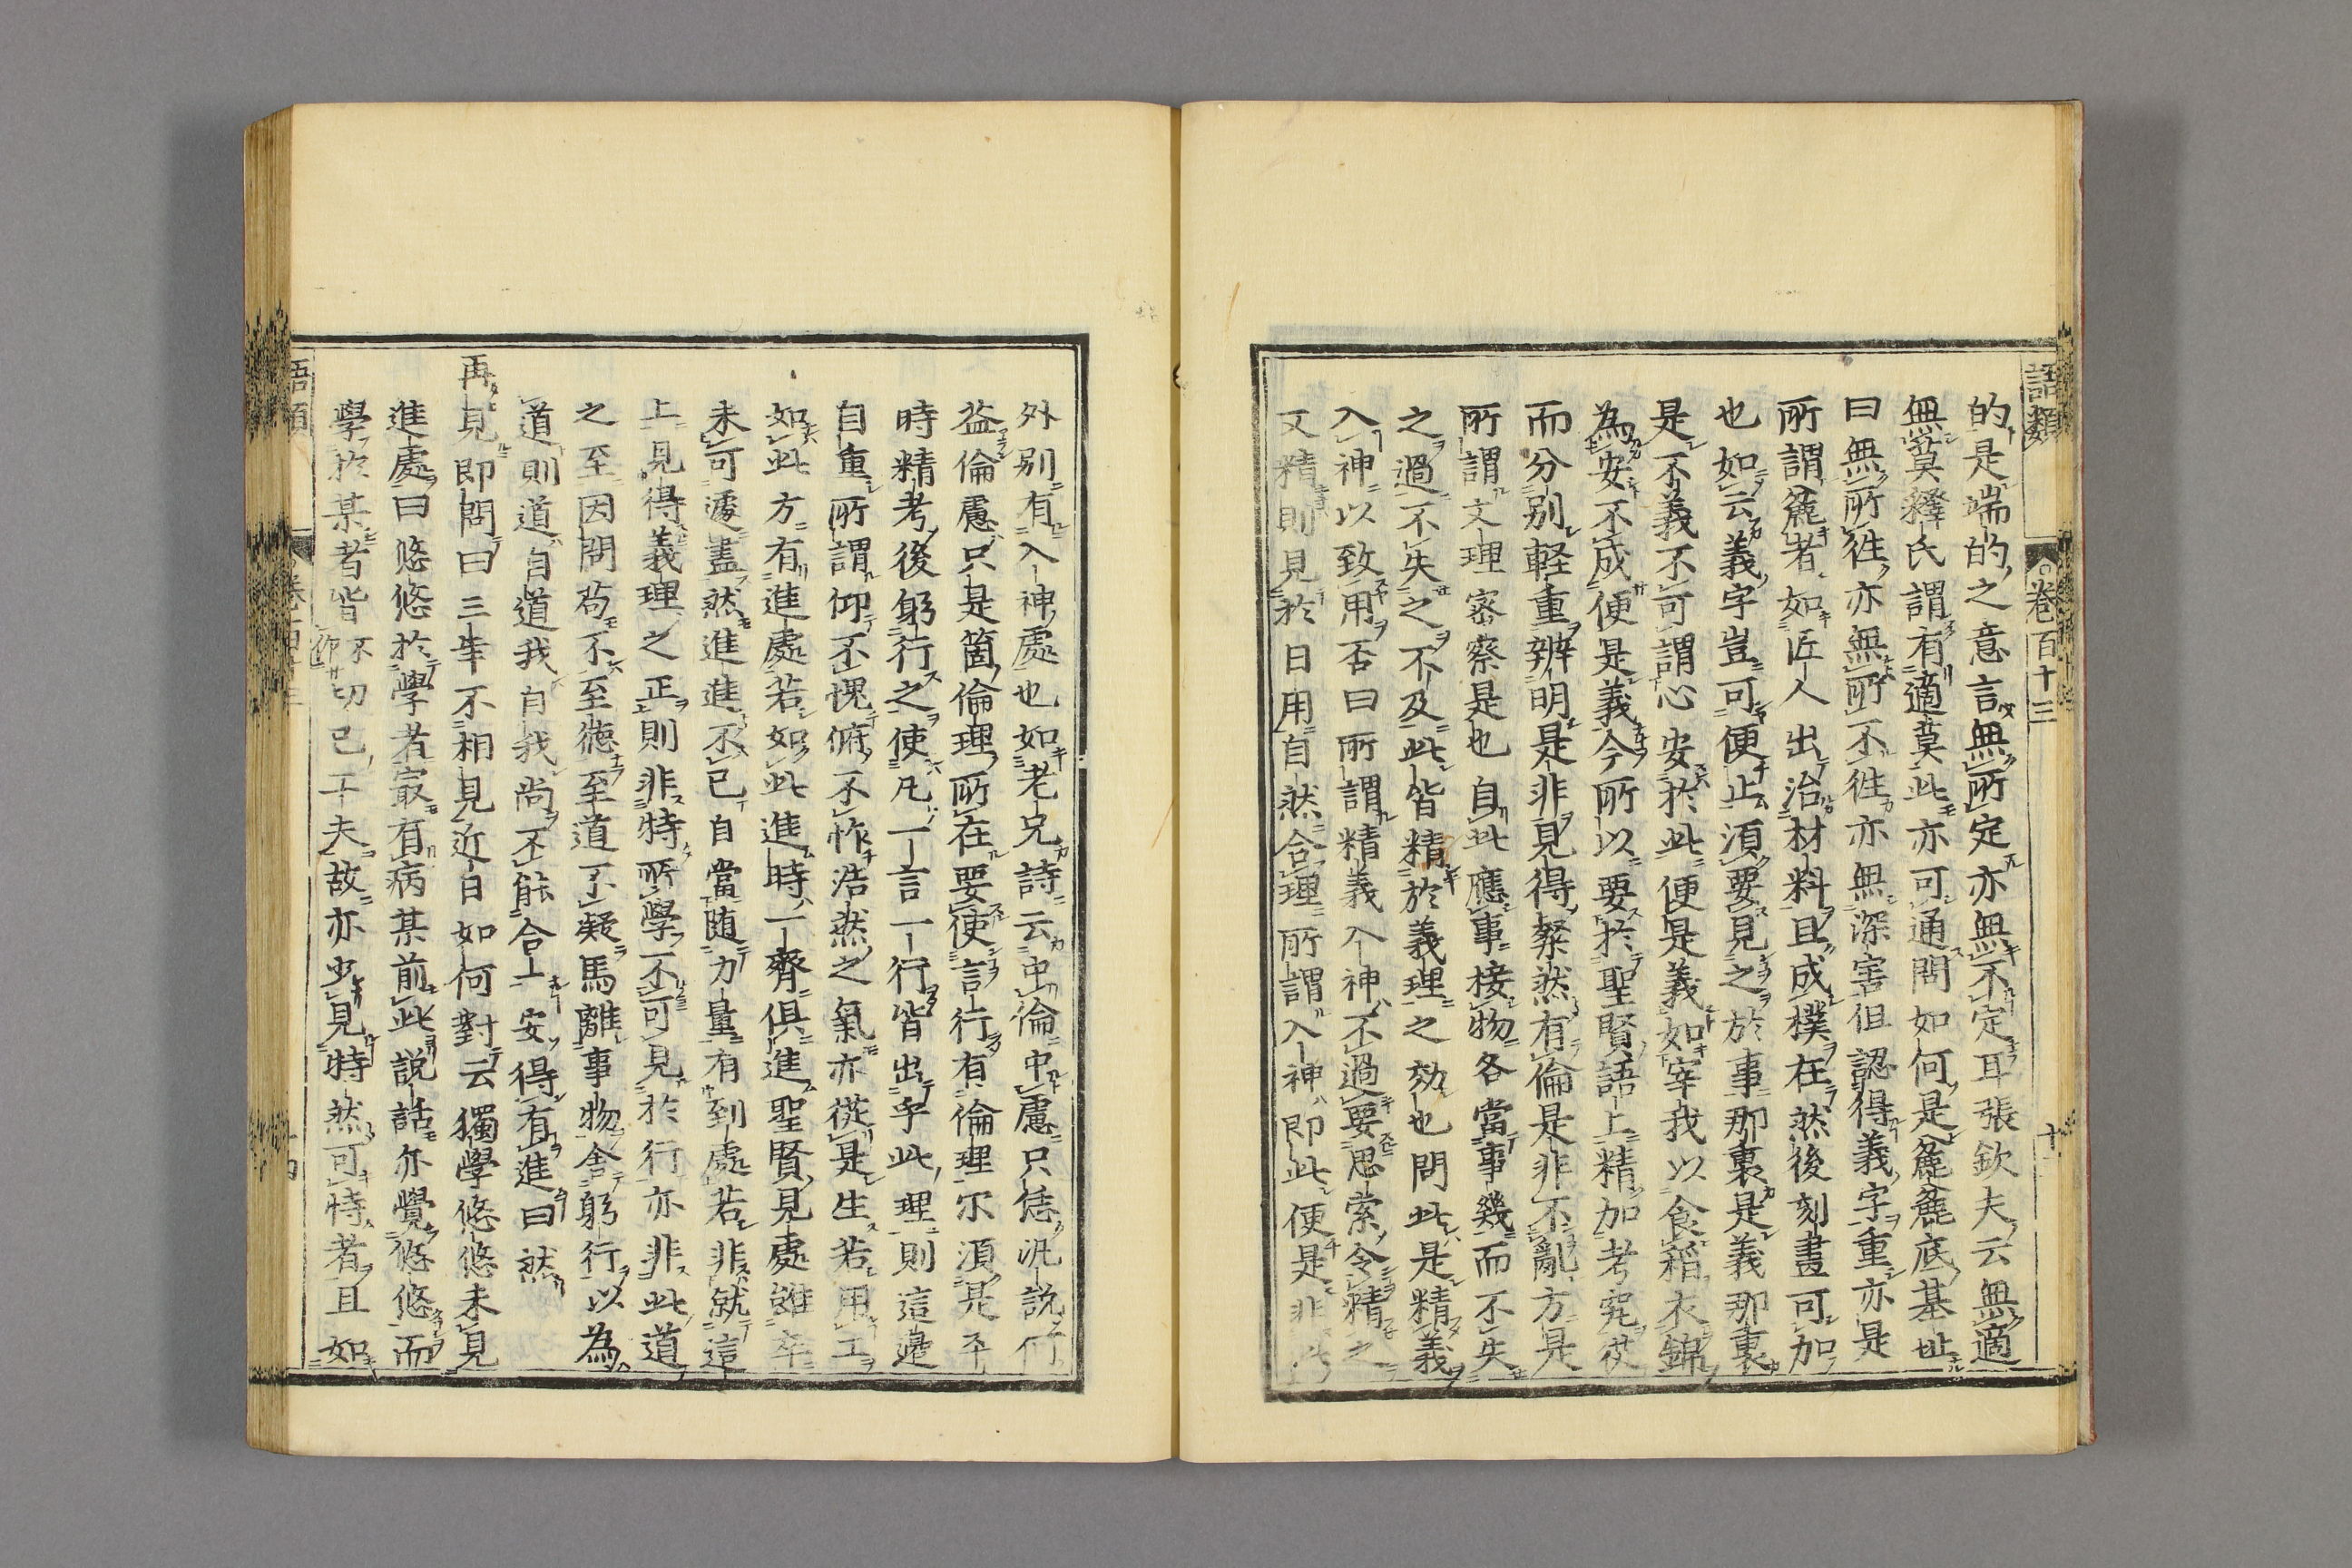 語類
卷百十三
十
的是端的之意言無所定亦無不定耳張欽夫云無適
無莫釋氏謂有適莫此亦可通問如何是麄麄底基址
曰無所徃亦無所不徃亦無深害但認得義字重亦是
所謂麄者如匠人出治材料且成樸在然後刻畫可加
也如云義字豈可便止須要見之於事那裏是義那裏
是不義不可謂心安於此便是義如宰我以食稻衣錦
為安不成便是義今所以要於聖賢語上精加考究從
而分別輕重辨明是非見得粲然有倫是非不亂方是
所謂文理密察是也自此應事接物各當事幾而不失
之過不失之不及此皆精於義理之効也問此是精義
入神以致用否曰所謂精義入神不過要思索令精之
又精則見於日用自然合理所謂入神即此便是非此
外別有入神處也如老兄詩云中倫中慮只恁汎說何
益倫慮只是箇倫理所在要使言行有倫理尔須是平
時精考後躬行之使凡一言一行皆出乎此理則這邊
自重所謂仰不愧俯不怍浩然之氣亦從是生若用工
如此方有進處若如此進時一齊俱進聖賢見處雖卒
未可遽盡然進進不已自當随力量有到處若非就這
上見得義理之正則非特所學不可見於行亦非此道
之至因問苟不至德至道不凝焉離事物舍躬行以為
道則道自道我自我尚不能合一安得有進曰然
再見即問曰三年不相見近日如何對云獨學悠悠未見
進處曰悠悠於學者㝡有病某前此說話亦覺悠悠而
學於某者皆不切己工夫故亦少見特然可恃者且如
語類